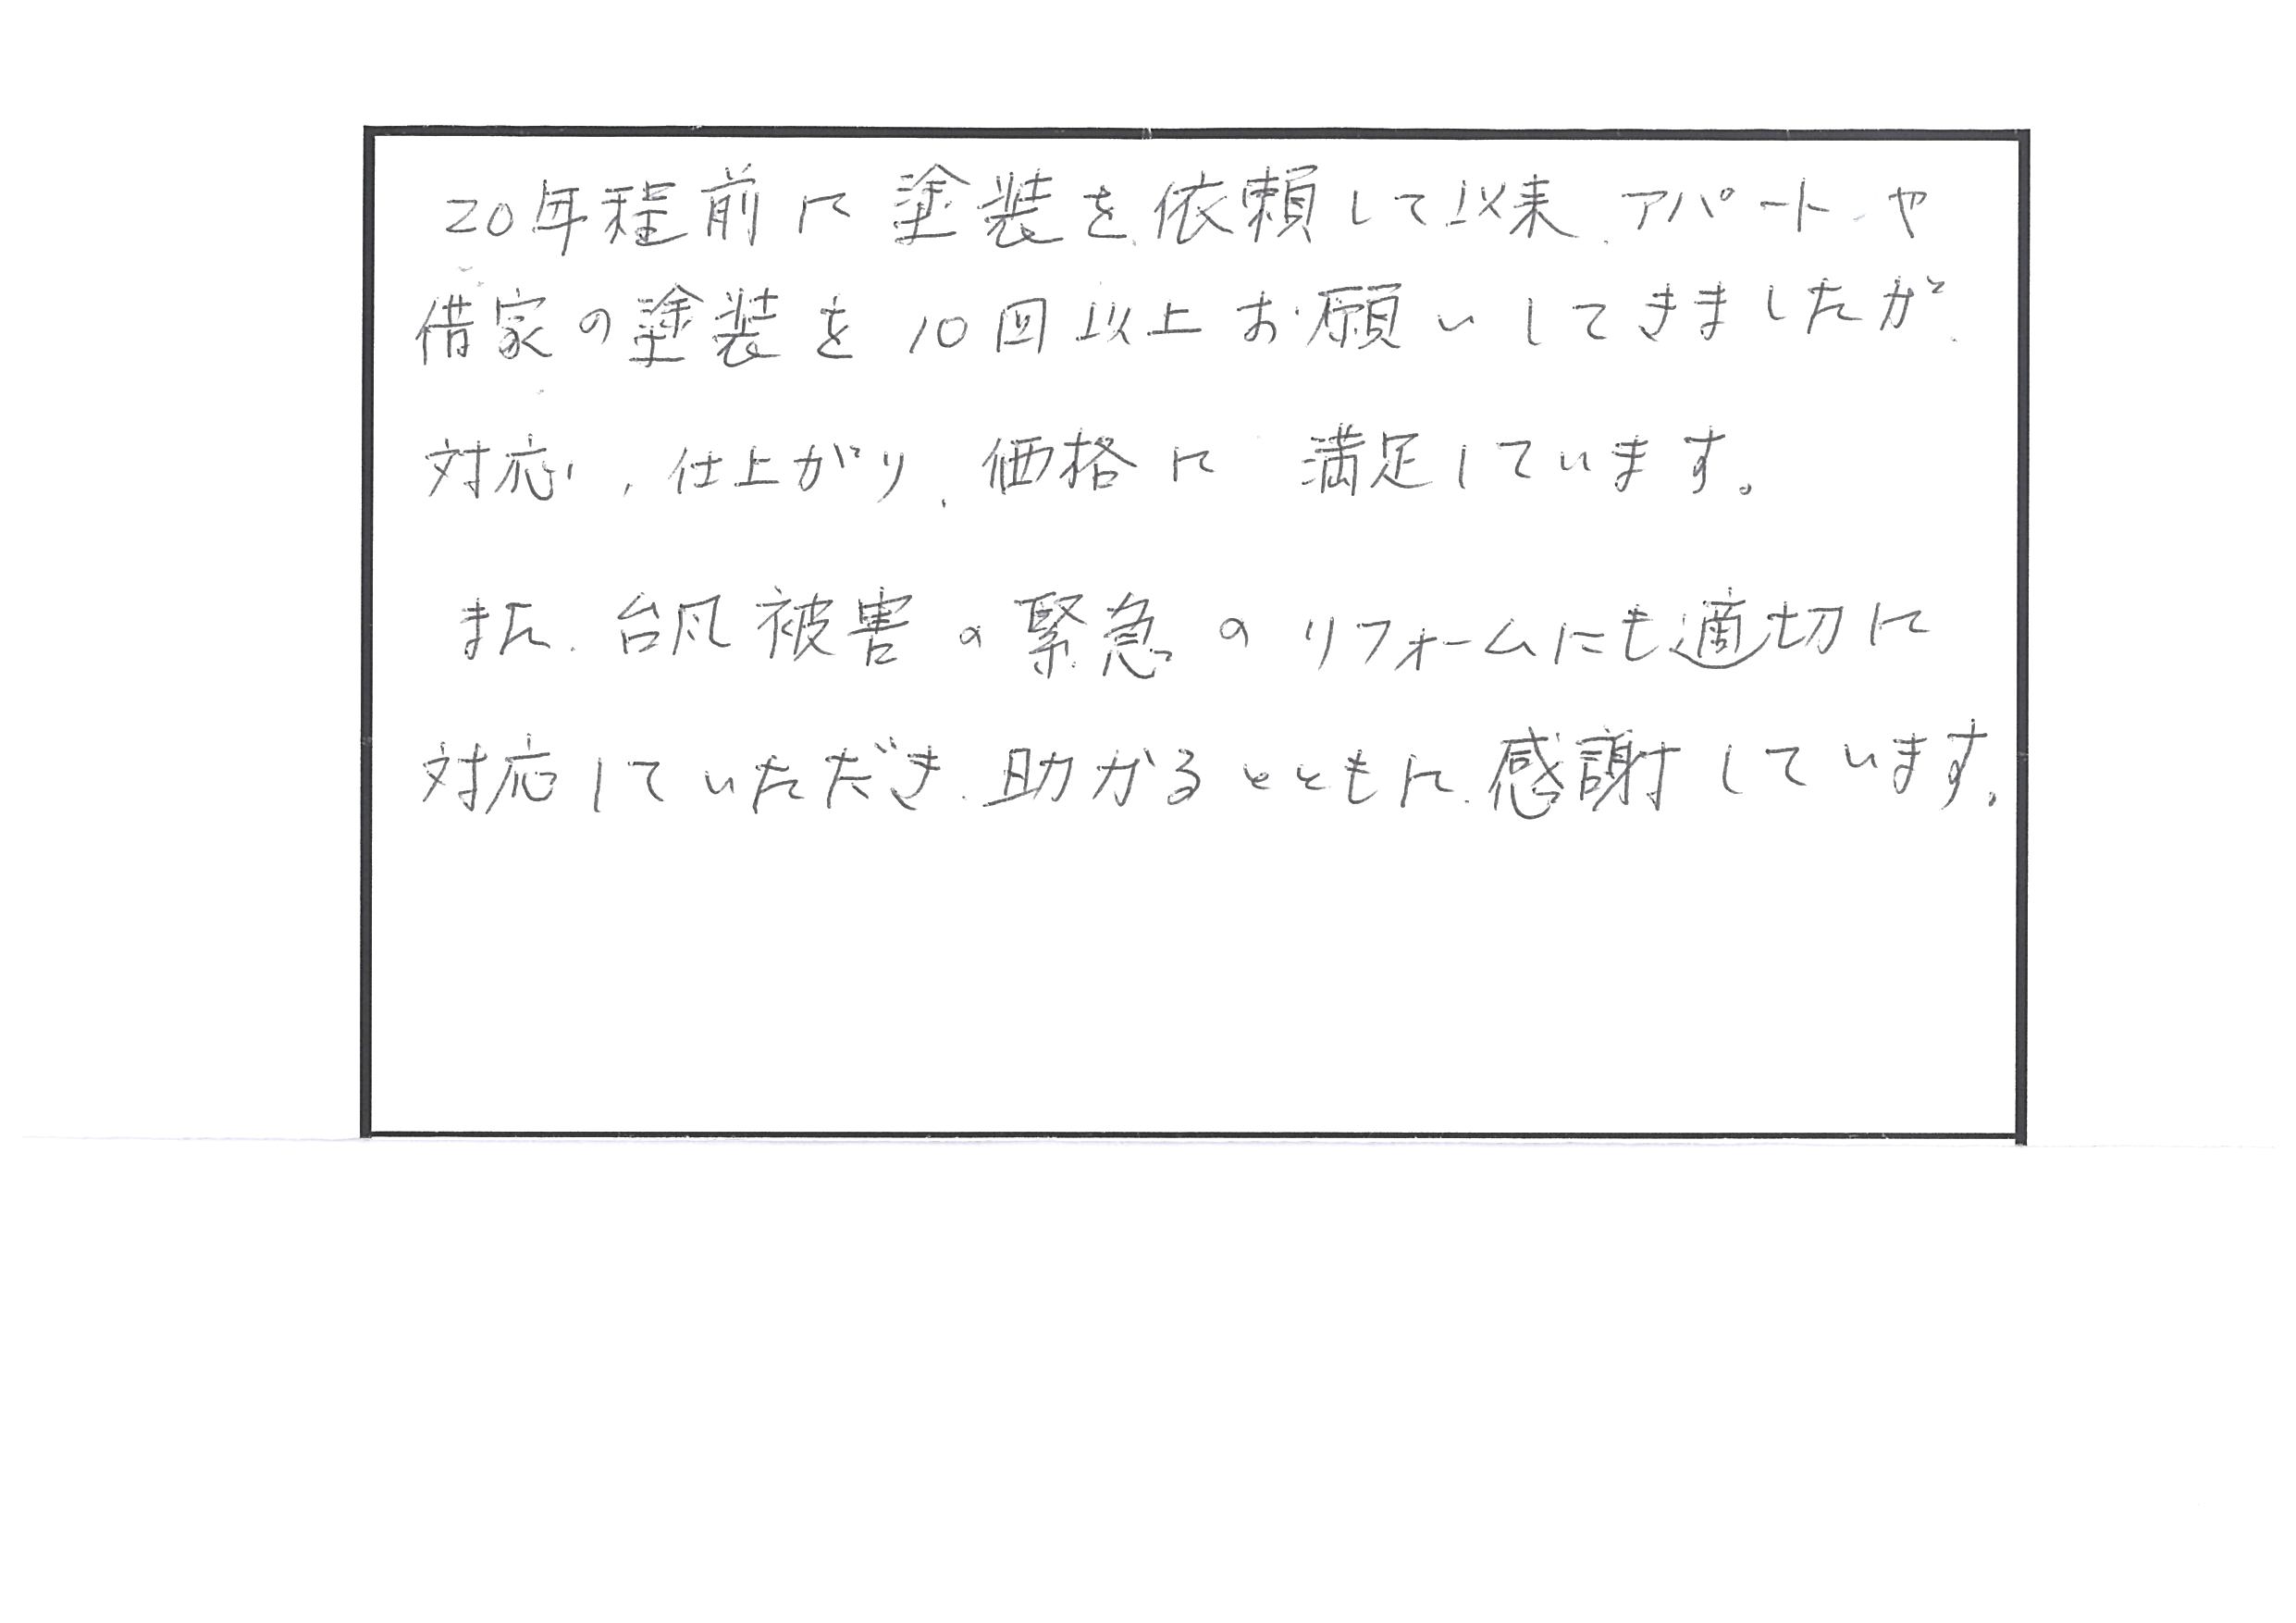 20年程前に塗装を依頼して以来、アパートや
借家の塗装を10回以上お願いしてきましたが、
対応、仕上がり、価格に満足しています。
また、台風被害の緊急のリフォームにも適切に
対応していただき、助かるとともに、感謝しています。